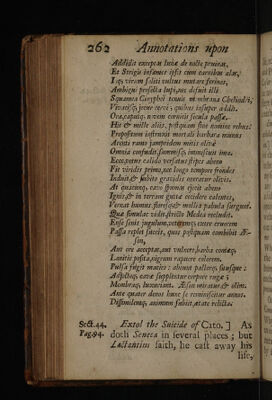 262 Annotations upon
Addidit exceptas lunæ de nocte pruinas,
Et Strigis infames ipsis cum carnibus alas,
Inq; virum soliti vultus mutare ferinos,
Ambigui prosecta lupi, nec defuit illi
Squamea Cinyphei tenuis membrana Chelidri,
Vivacisq; jecur cervi; quibus insuper addit
Ora, caputq; novem cornicis secula passæ.
His & mille aliis, postquam sine nomine rebus
Propositum instruxit mortali barbara munus
Arenti ramo jampridem mitis olivæ
Omnia confudit, summisq; immiscuit ima.
Ecce vetus calido versatus stipes aheno
Fit viridis primo, nec longo tempore frondes
Induit, & subito gravidis oneratur olivis.
At quacunq; cavo spumas ejecit aheno
Ignis, & in terram guttæ cecidere calentes,
Vernat humus, floresq; & mollia pabula surgunt.
Quæ simulac vidit, stricto Medea recludit
Ense senis jugulum, veteremq; exire cruorem
Passa replet succis, quos postquam combibit Æ-
son,
Aut ore acceptas, aut vulnere, barba comæq;
Canitie posita, nigrum rapuere colorem.
Pulsa fugit macies: abeunt pallorq; situsque:
Adjectoq; cavæ supplentur corpore rugæ:
Membraq; luxuriant. Æson miratur, & olim
Ante quater denos hunc se reminiscitur annos.
Dissimilemq; animum subiit, ætate relicta.
Sect.44. Extol the Suicide of Cato. ] As
Pag.94. doth Seneca in several places; but
Lactantius saith, he cast away his
life,